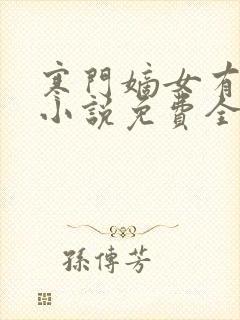 寒門嫡女有
小説免費全
孫傳芳